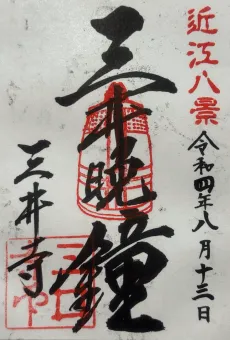 近江八景
令和四年八月十三日
三井晩鐘
三井寺